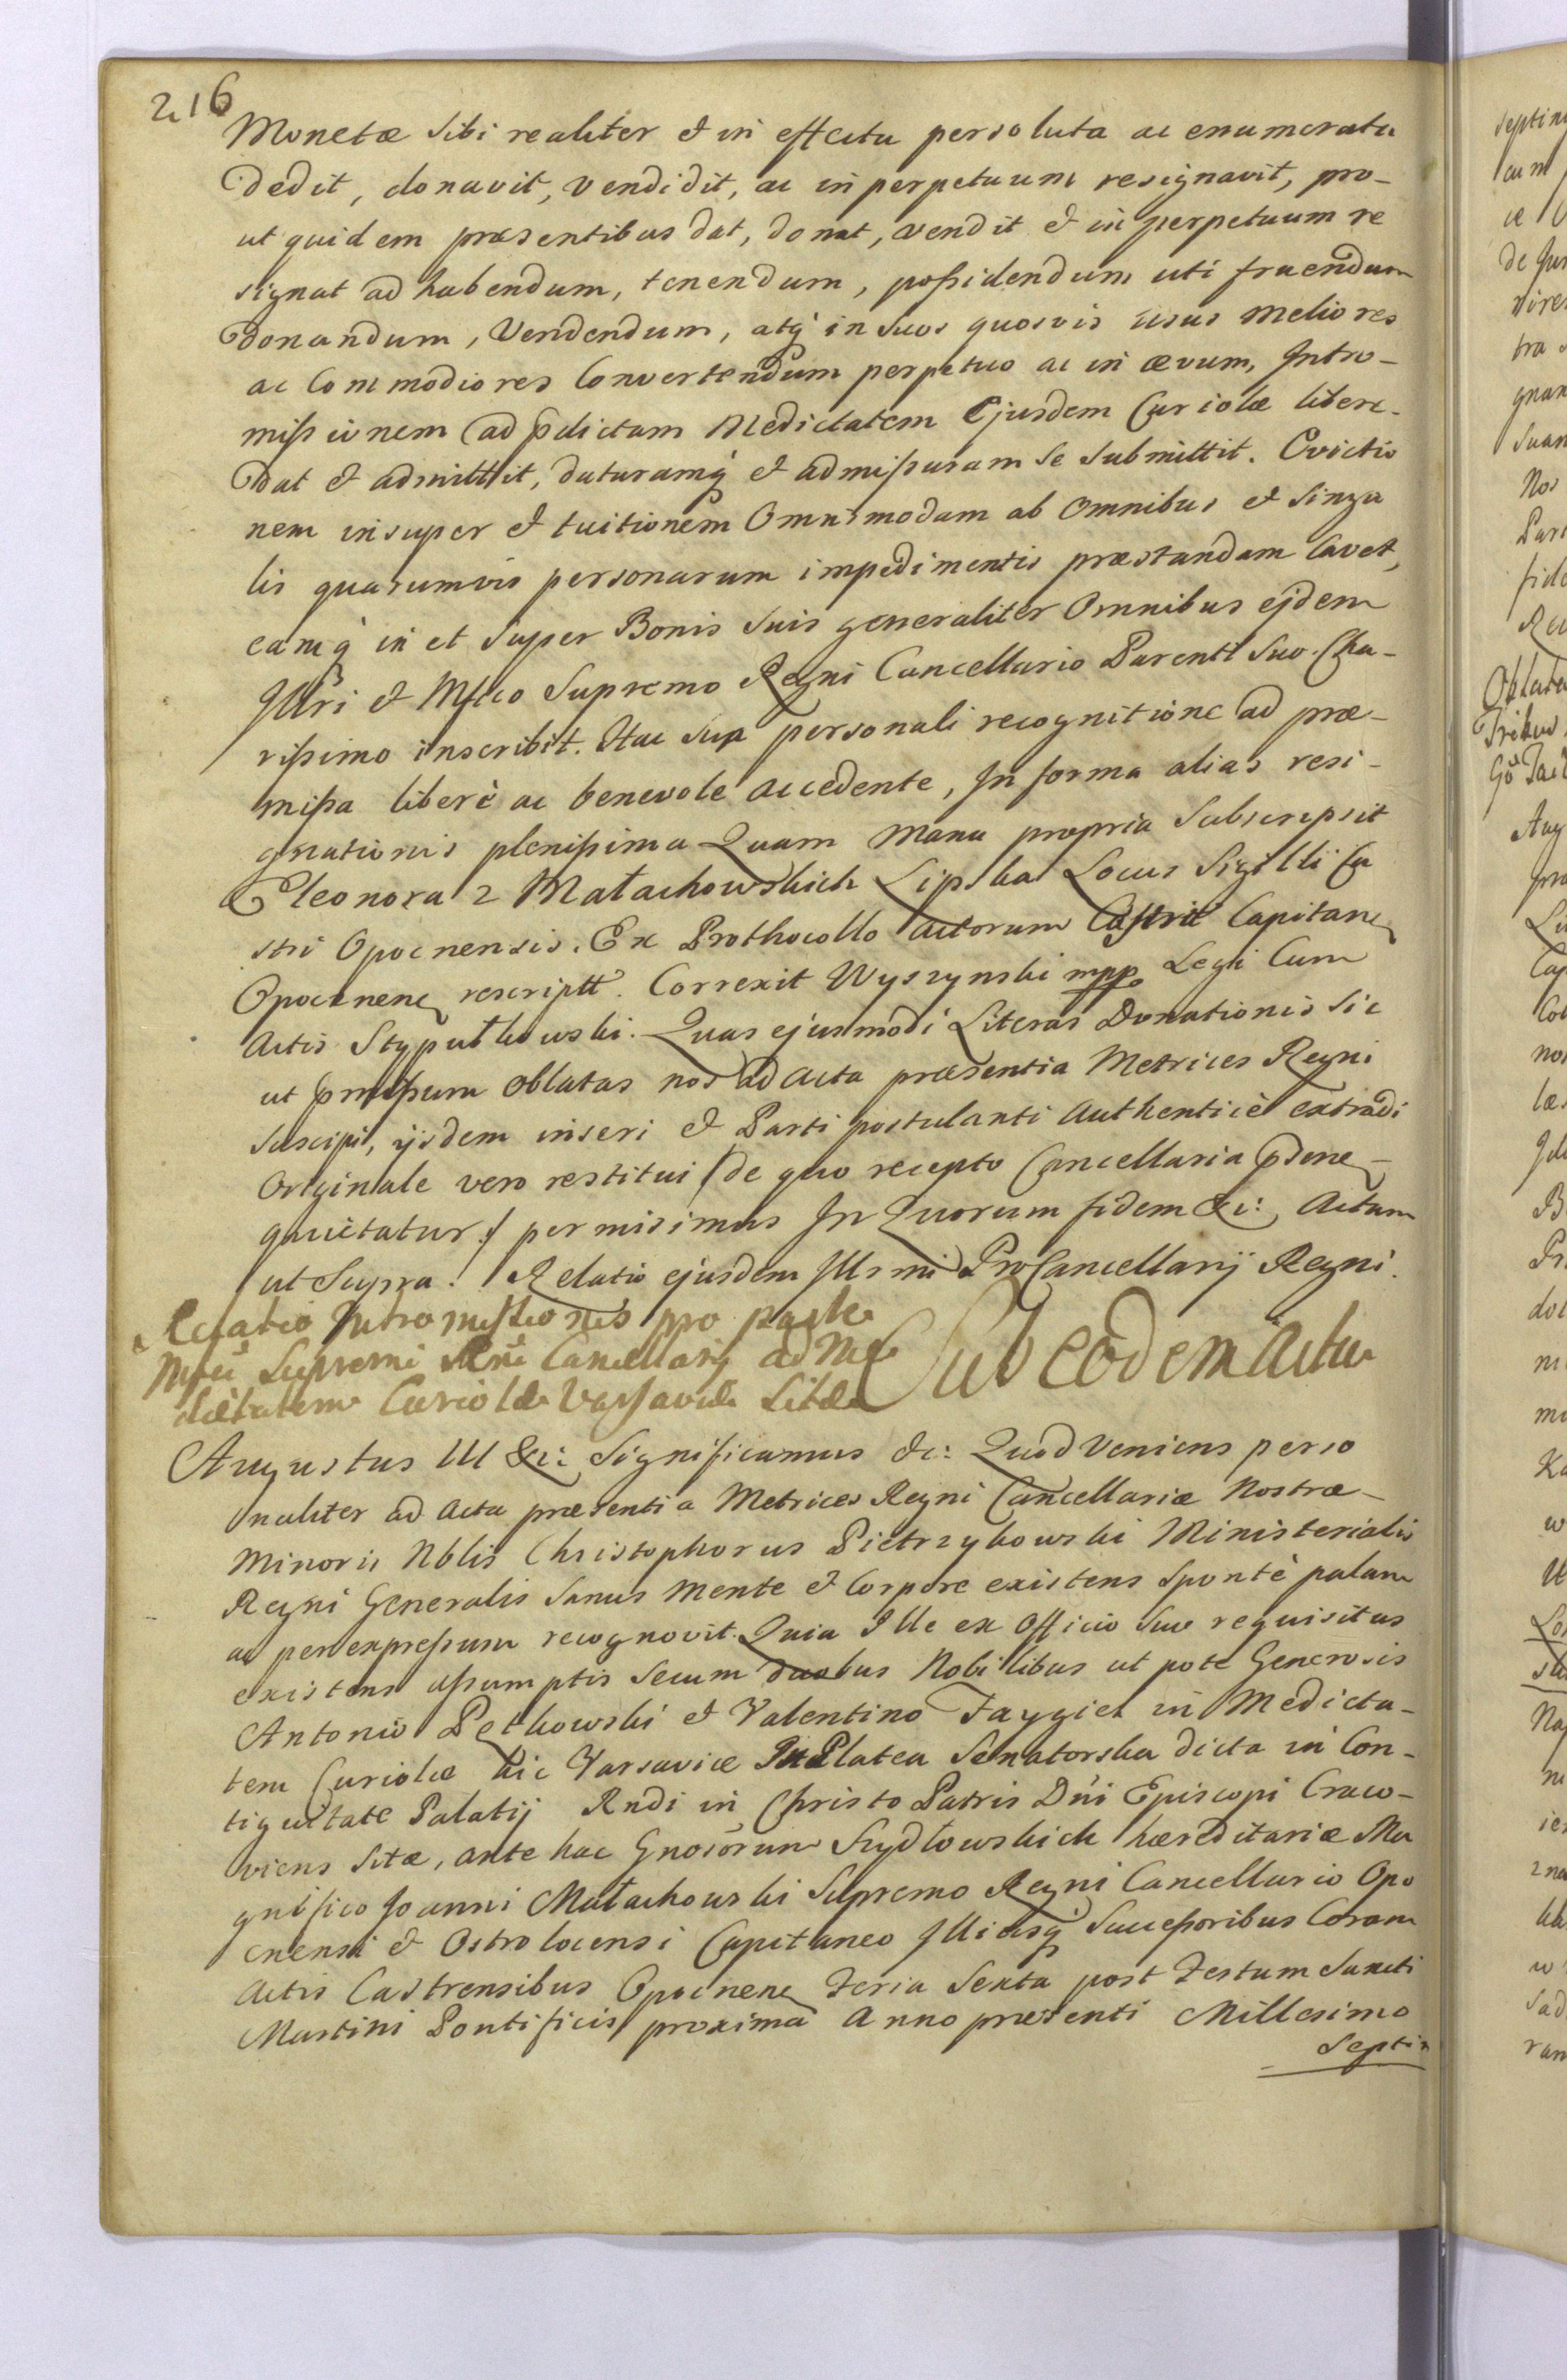 216
Monetæ Sibi realiter & in effectu persoluta ac enumerata
dedit, donavit, vendidit, ac in perpetuum resignavit, pro-
ut quidem præsentibus dat, donat, vendit & in perpetuum re
signat ad habendum, tenendum, possidendum uti fruendum
donandum, Vendendum, atq́ in Suos quosvis usus meliores
ac Commodiores Convertendum perpetuo ac in ævum, Intro-
missionem ad pdictam Medietatem Ejusdem Curiolæ libere
dat & admittit, daturamq́ & admissuram se submittit. Evictio
nem insuper & tuitionem Omnimodam ab Omnibus & Singu
lis quarumvis personarum impedimentis præstandam Cavet,
eamq́ in et Super Bonis Suis generaliter Omnibus ejdem
Illri & Mfico Supremo Regni Cancellario Parenti Suo Cha-
rissimo inscribit. Hac Sua personali recognitione ad præ-
missa liberè ac benevole accedente, In forma alias resi-
gnationis plenissima Quam Manu propria Subscripsit
Eleonora z Małachowskich Lipska Locus Sigilli Ca
stri Opocnensis. Ex Prothocollo actorum Castri Capitan
Opocnen rescriptt. Correxit Wyszynski mpp Legi Cum
Actis Stypułkowski. Quas ejusmodi Literas Donationis Sic
ut pmissum oblatas nos ad acta præsentia Metrices Regni
Suscipi, ijsdem inseri & Parti postulanti Authenticè extradi
Originale vero restitui (de quo recepto Cancellaria pdene
quietatur) permisimus In Quorum fidem &c: Actum
ut Supra. Relatio ejusdem Illrmi ProCancellarij Regni.
Relatio Intromissionis pro parte
Mfci Supremi Rni Cancellarij ad Me
dietatem Curiolæ Varsaviæ Sitæ
Sub eodem actu
Augustus III &c: Significamus &c: Quod Veniens perso
naliter ad Acta præsentia Metrices Regni Cancellariæ Nostræ
Minoris Nblis Christophorus Pietrzykowski Ministerialis
Regni Generalis Sanus Mente & Corpore existens Spontè palam
ac per expressum recognovit. Quia Ille ex Officio Suo requisitus
existens assumptis Secum duobus Nobilibus ut pote Generosis
Antonio Petkowski & Valentino Faygiel in Medieta-
tem Curiolæ hic Varsaviæ In Platea Senatorska dicta in Con-
tiguitate Palatij Rndi in Christo Patris Dni Episcopi Craco-
viens Sitæ, ante hac Gnosorum Szydłowskich hæreditariæ Ma
gnifico Joanni Małachowski Supremo Regni Cancellario Opo
cnensi & Ostrolocensi Capitaneo Illiusq́ Successoribus Coram
Actis Castrensibus Opocnen Feria Sexta post Festum Sancti
Martini Pontificis proxima Anno præsenti Millesimo
Septin